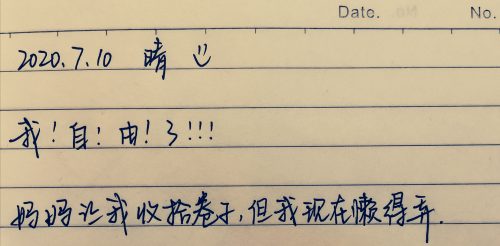 Date. No.
2020.7.10 晴
我！自！由！了!!!
妈妈让我收拾卷子,但我现在懒得弄.